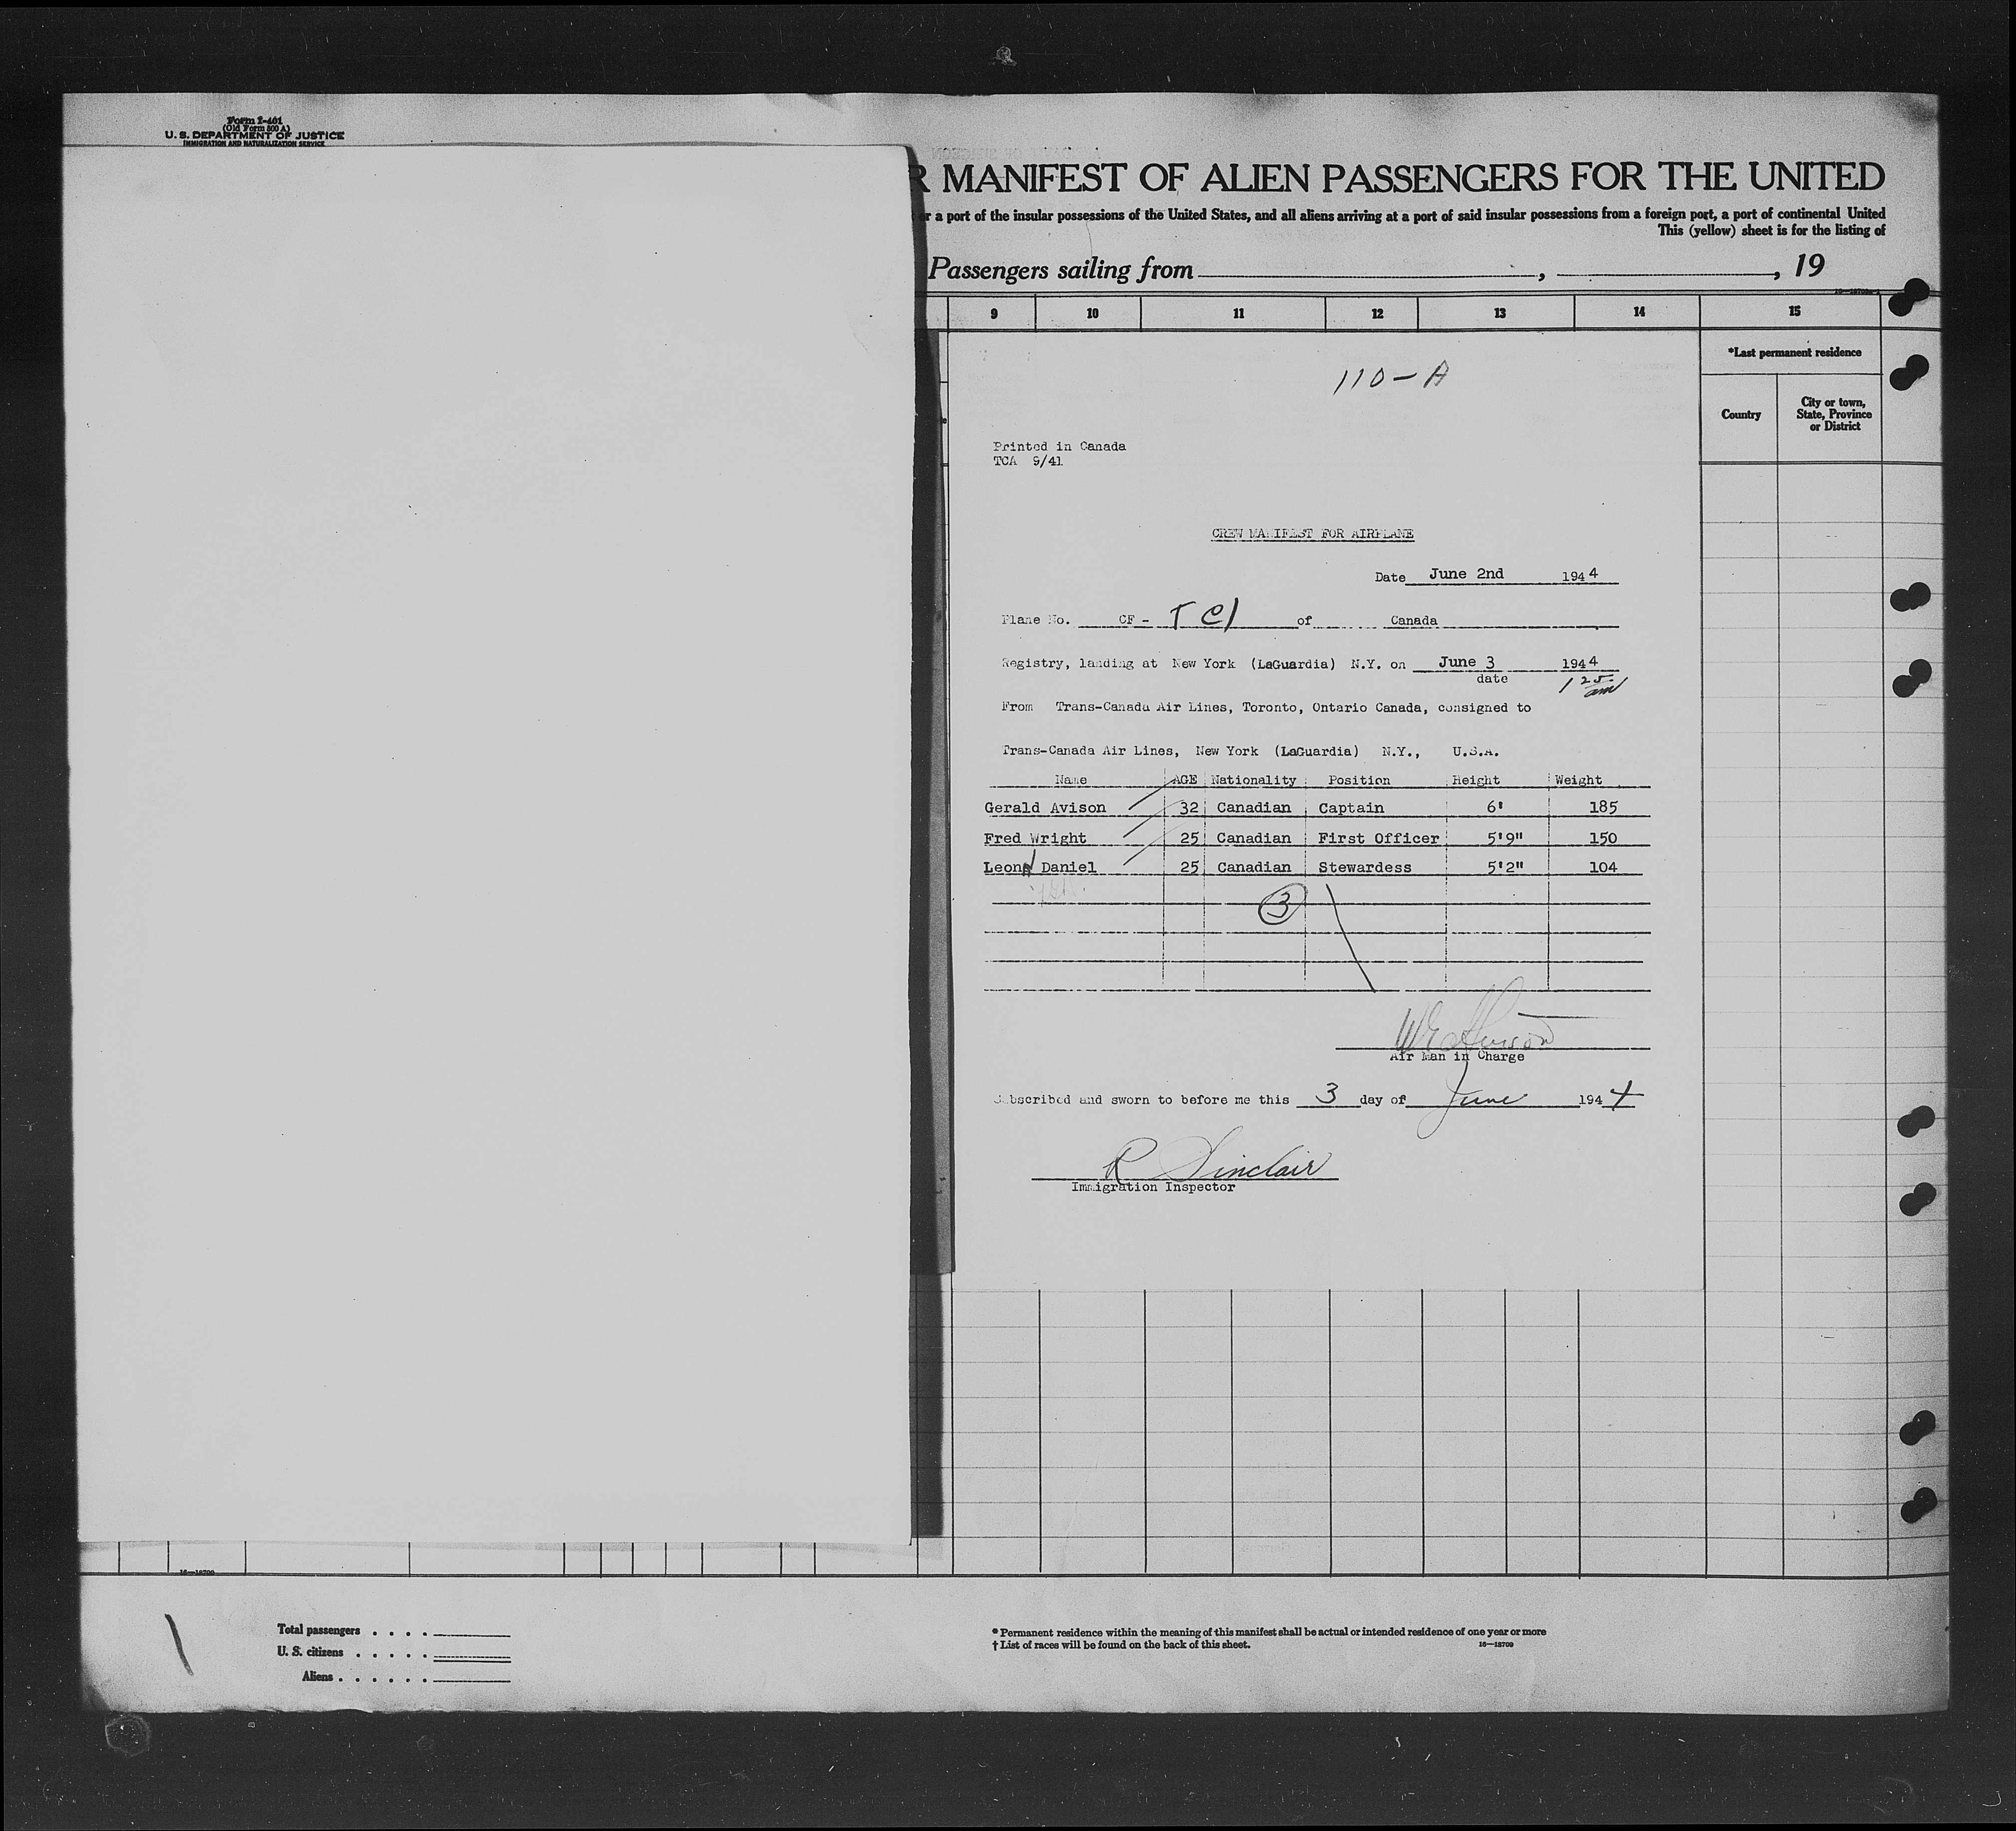 Form I-461
(Old Form 500 A)
U. S. DEPARTMENT OF JUSTICE
IMMIGRATION AND NATURALIZATION SERVICE
R MANIFEST OF ALIEN PASSENGERS FOR THE UNITED
or a port of the insular possessions of the United States, and all aliens arriving at a port of said insular possessions from a foreign port, a port of continental United
This (yellow) sheet is for the listing of
Passengers sailing from , , 19
9 10 11 12 13 14 15
*Last permanent residence
Country
City or town,
State, Province
or District
110-A
Printed in Canada
TCA 9/41
CREW MANIFEST FOR AIRPLANE
Date June 2nd 1944
Plane No. CF - of Canada
Registry, landing at New York (LaGuardia) N.Y. on June 3 1944
date 1 25 am
From Trans-Canada Air Lines, Toronto, Ontario Canada, consigned to
Trans-Canada Air Lines, New York (LaGuardia) N.Y., U.S.A.
Name AGE Nationality Position Height Weight
Gerald Avison 32 Canadian Captain 6' 185
Fred Wright 25 Canadian First Officer 5'9" 150
Leona Daniel 25 Canadian Stewardess 5'2" 104
3
Air Man in Charge
Subscribed and sworn to before me this 3 day of June 1944
R Sinclair
Immigration Inspector
16—18709
Total passengers . . . .
U. S. citizens . . . . .
Aliens . . . . . .
* Permanent residence within the meaning of this manifest shall be actual or intended residence of one year or more
† List of races will be found on the back of this sheet. 16—18709